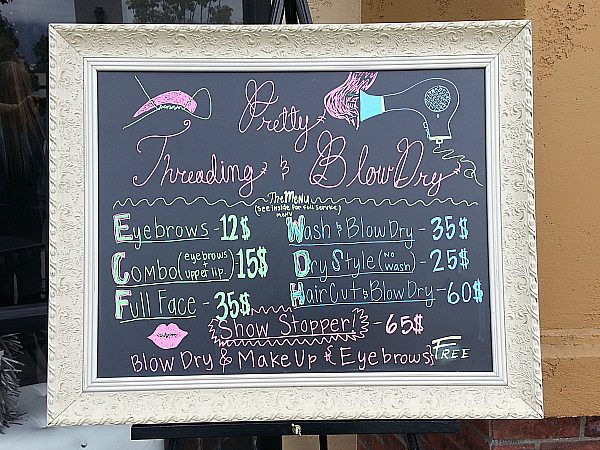 Pretty
Threading & Blow Dry
The Menu
(See inside for full service)
menu
Eyebrows - 12$
Combo (eyebrows + upper lip) 15$
Full Face - 35$
Wash & Blow Dry - 35$
Dry Style (no wash) - 25$
Hair Cut & Blow Dry - 60$
Show Stopper! - 65$
Blow Dry & MakeUp & {Eyebrows} FREE